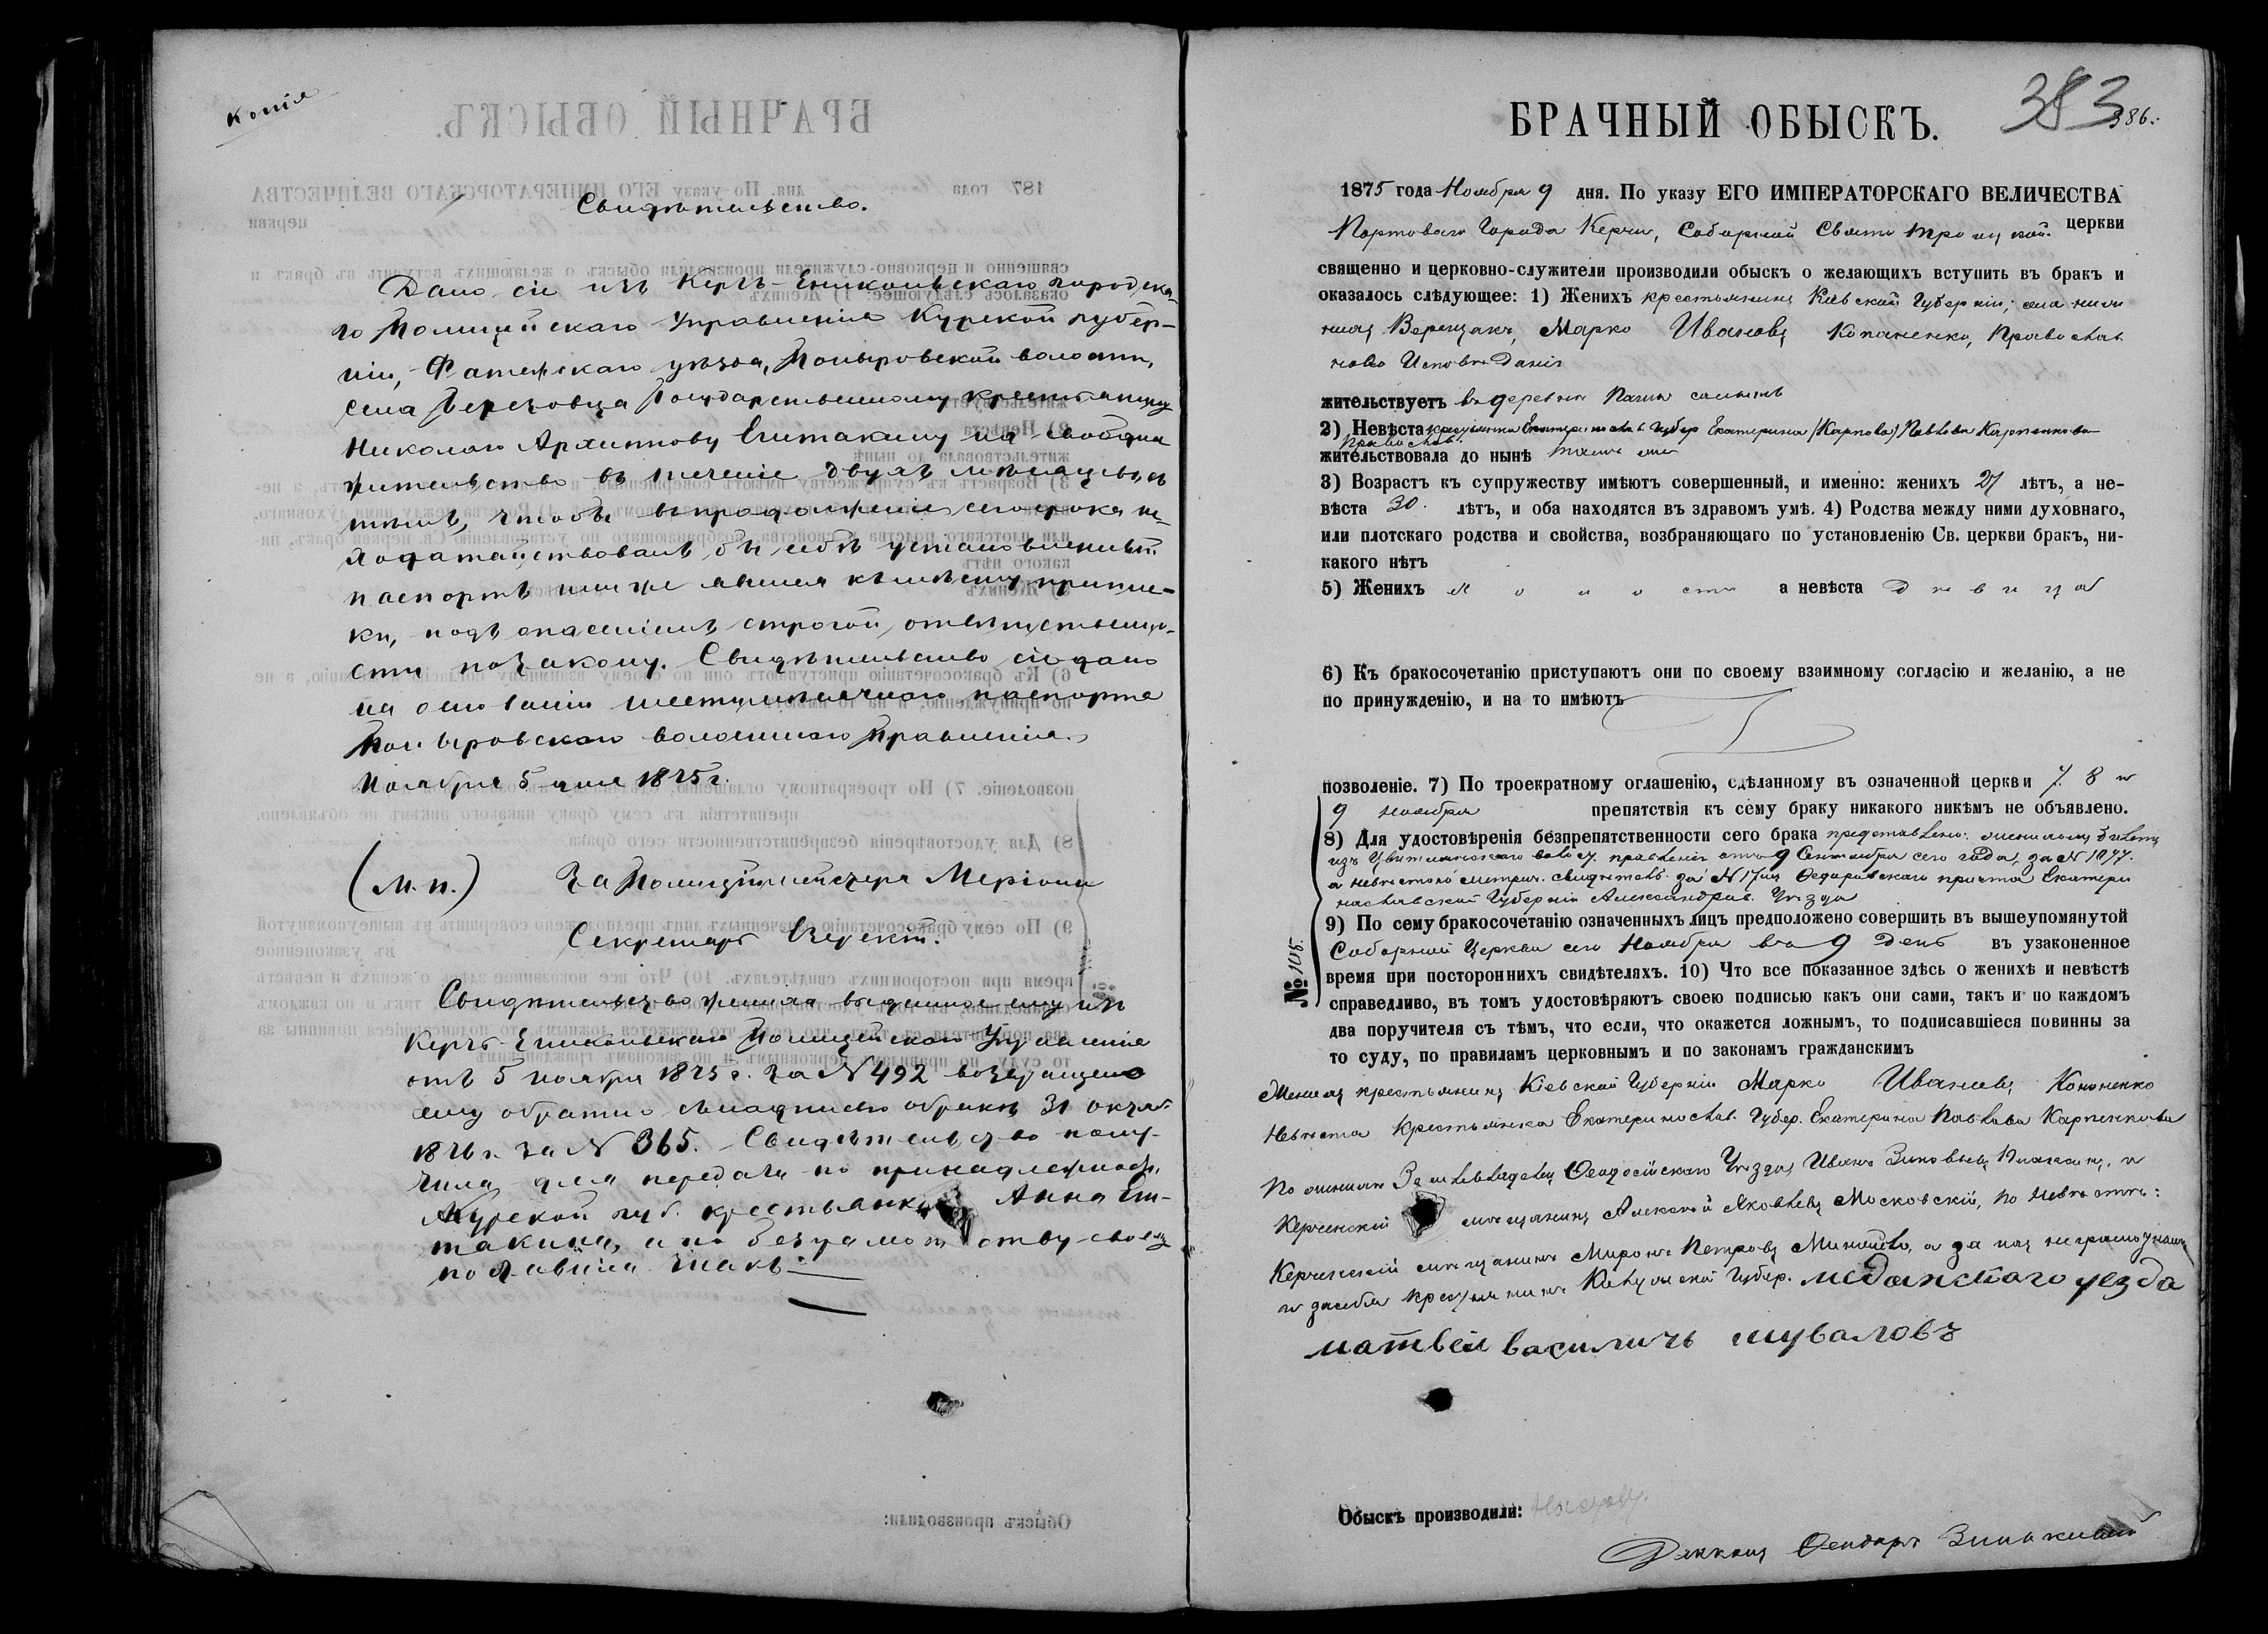 Копія
Свидѣтельство.
Дано сіе изъ Керчь-Еникольскаго городска-
го Полицейскаго Управленія Курской губер-
ніи, Фатежскаго уѣзда, Поныровской волости,
села Березовца Государственному крестьянину
Николаю Архиппову Енитакину на свободное
жительство въ теченіе двухъ мѣсяцовъ, съ
тѣмъ, чтобы въ продолженіе сего срока
ходатайствовалъ бы себѣ установленный
паспортъ или же явился къ мѣсту припис-
ки, подъ опасеніемъ строгой ответственно-
сти по закону. Свидѣтельство сіе дано
на основаніи шестимѣсячнаго паспорта
Поныровскаго волостнаго Правленія.
Ноября 5 дня 1875 г.
(М.П.) За Полицiймейстера
Секретарь
Свидѣтельство жениха выданное ему изъ
Керчь-Еникольскаго Полицейскаго Управленія
отъ 5 ноября 1875 г. за № 492 возвращено
ему обратно съ надписью о бракѣ 31 октяб.
1876 г. за № 365. Свидѣтельство полу-
чила для передачи по принадлежности,
Курской губ. крестьянка Анна Ени-
такина, а по безграмотству своему
поставила знакъ
БРАЧНЫЙ ОБЫСКЪ.
383
386.
1875 года Ноября 9 дня. По указу ЕГО ИМПЕРАТОРСКАГО ВЕЛИЧЕСТВА
Портоваго Города Керчи, Соборной Свято Троицкой церкви
священно и церковно-служители производили обыскъ о желающихъ вступить въ бракъ и
оказалось слѣдующее: 1) Женихъ крестьянинъ Кіевской Губерніи;
Марко Ивановъ Кононенко, Православ
наго Исповѣданія
жительствуетъ въ деревнѣ
2) Невѣста крестьянка Екатеринослав. Губер Екатерина (Карпова) Павлова Карпенкова
Православ.
жительствовала до нынѣ тамъ же
3) Возрастъ къ супружеству имѣютъ совершенный, и именно: женихъ 27 лѣтъ, а не-
вѣста 30 лѣтъ, и оба находятся въ здравомъ умѣ. 4) Родства между ними духовнаго,
или плотскаго родства и свойства, возбраняющаго по установленію Св. церкви бракъ, ни-
какого нѣтъ
5) Женихъ холостъ а невѣста дѣвица
6) Къ бракосочетанію приступаютъ они по своему взаимному согласію и желанію, а не
по принужденію, и на то имѣютъ
позволеніе. 7) По троекратному оглашенію, сдѣланному въ означенной церкви 7. 8 и
9 ноября препятствія къ сему браку никакого никѣмъ не объявлено.
8) Для удостовѣренія безпрепятственности сего брака представлено: женихомъ билетъ
изъ волост. правленія отъ 9 Сентября сего года, за № 1077.
а невѣстою метрич. свидѣтель. за № 17 изъ Ѳедоровскаго причта Екатери
нославской Губерніи Александров. Уѣзда
9) По сему бракосочетанію означенныхъ лицъ предположено совершить въ вышеупомянутой
Соборной Церкви сего Ноября въ 9 день въ узаконенное
время при постороннихъ свидѣтеляхъ. 10) Что все показанное здѣсь о женихѣ и невѣстѣ
справедливо, въ томъ удостовѣряютъ своею подписью какъ они сами, такъ и по каждомъ
два поручителя съ тѣмъ, что если, что окажется ложнымъ, то подписавшіеся повинны за
то суду, по правиламъ церковнымъ и по законамъ гражданскимъ
№ 108.
Женихъ крестьянинъ Кіевской Губерніи Марко Ивановъ Кононенко
Невѣста Крестьянка Екатеринослав. Губер. Екатерина Павлова Карпенкова
По женихѣ Ѳеодосійскаго Уѣзда, Иванъ Зиновьевъ и
Керченскій мѣщанинъ Алексѣй Яковлевъ Московскій, по невѣстѣ:
Керченскій мѣщанинъ Миронъ Петровъ а за нихъ неграмотныхъ
и засебя крестьянинъ Калужской Губер. меданскаго уезда
матвей василичь шуваловъ
Обыскъ производили:
Діаконъ